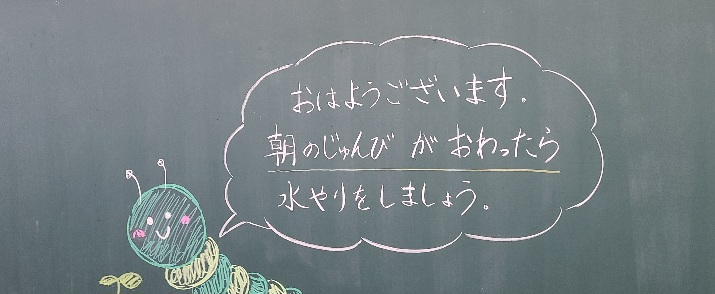 おはようございます。
朝のじゅんび が おわったら
水やりをしましょう。